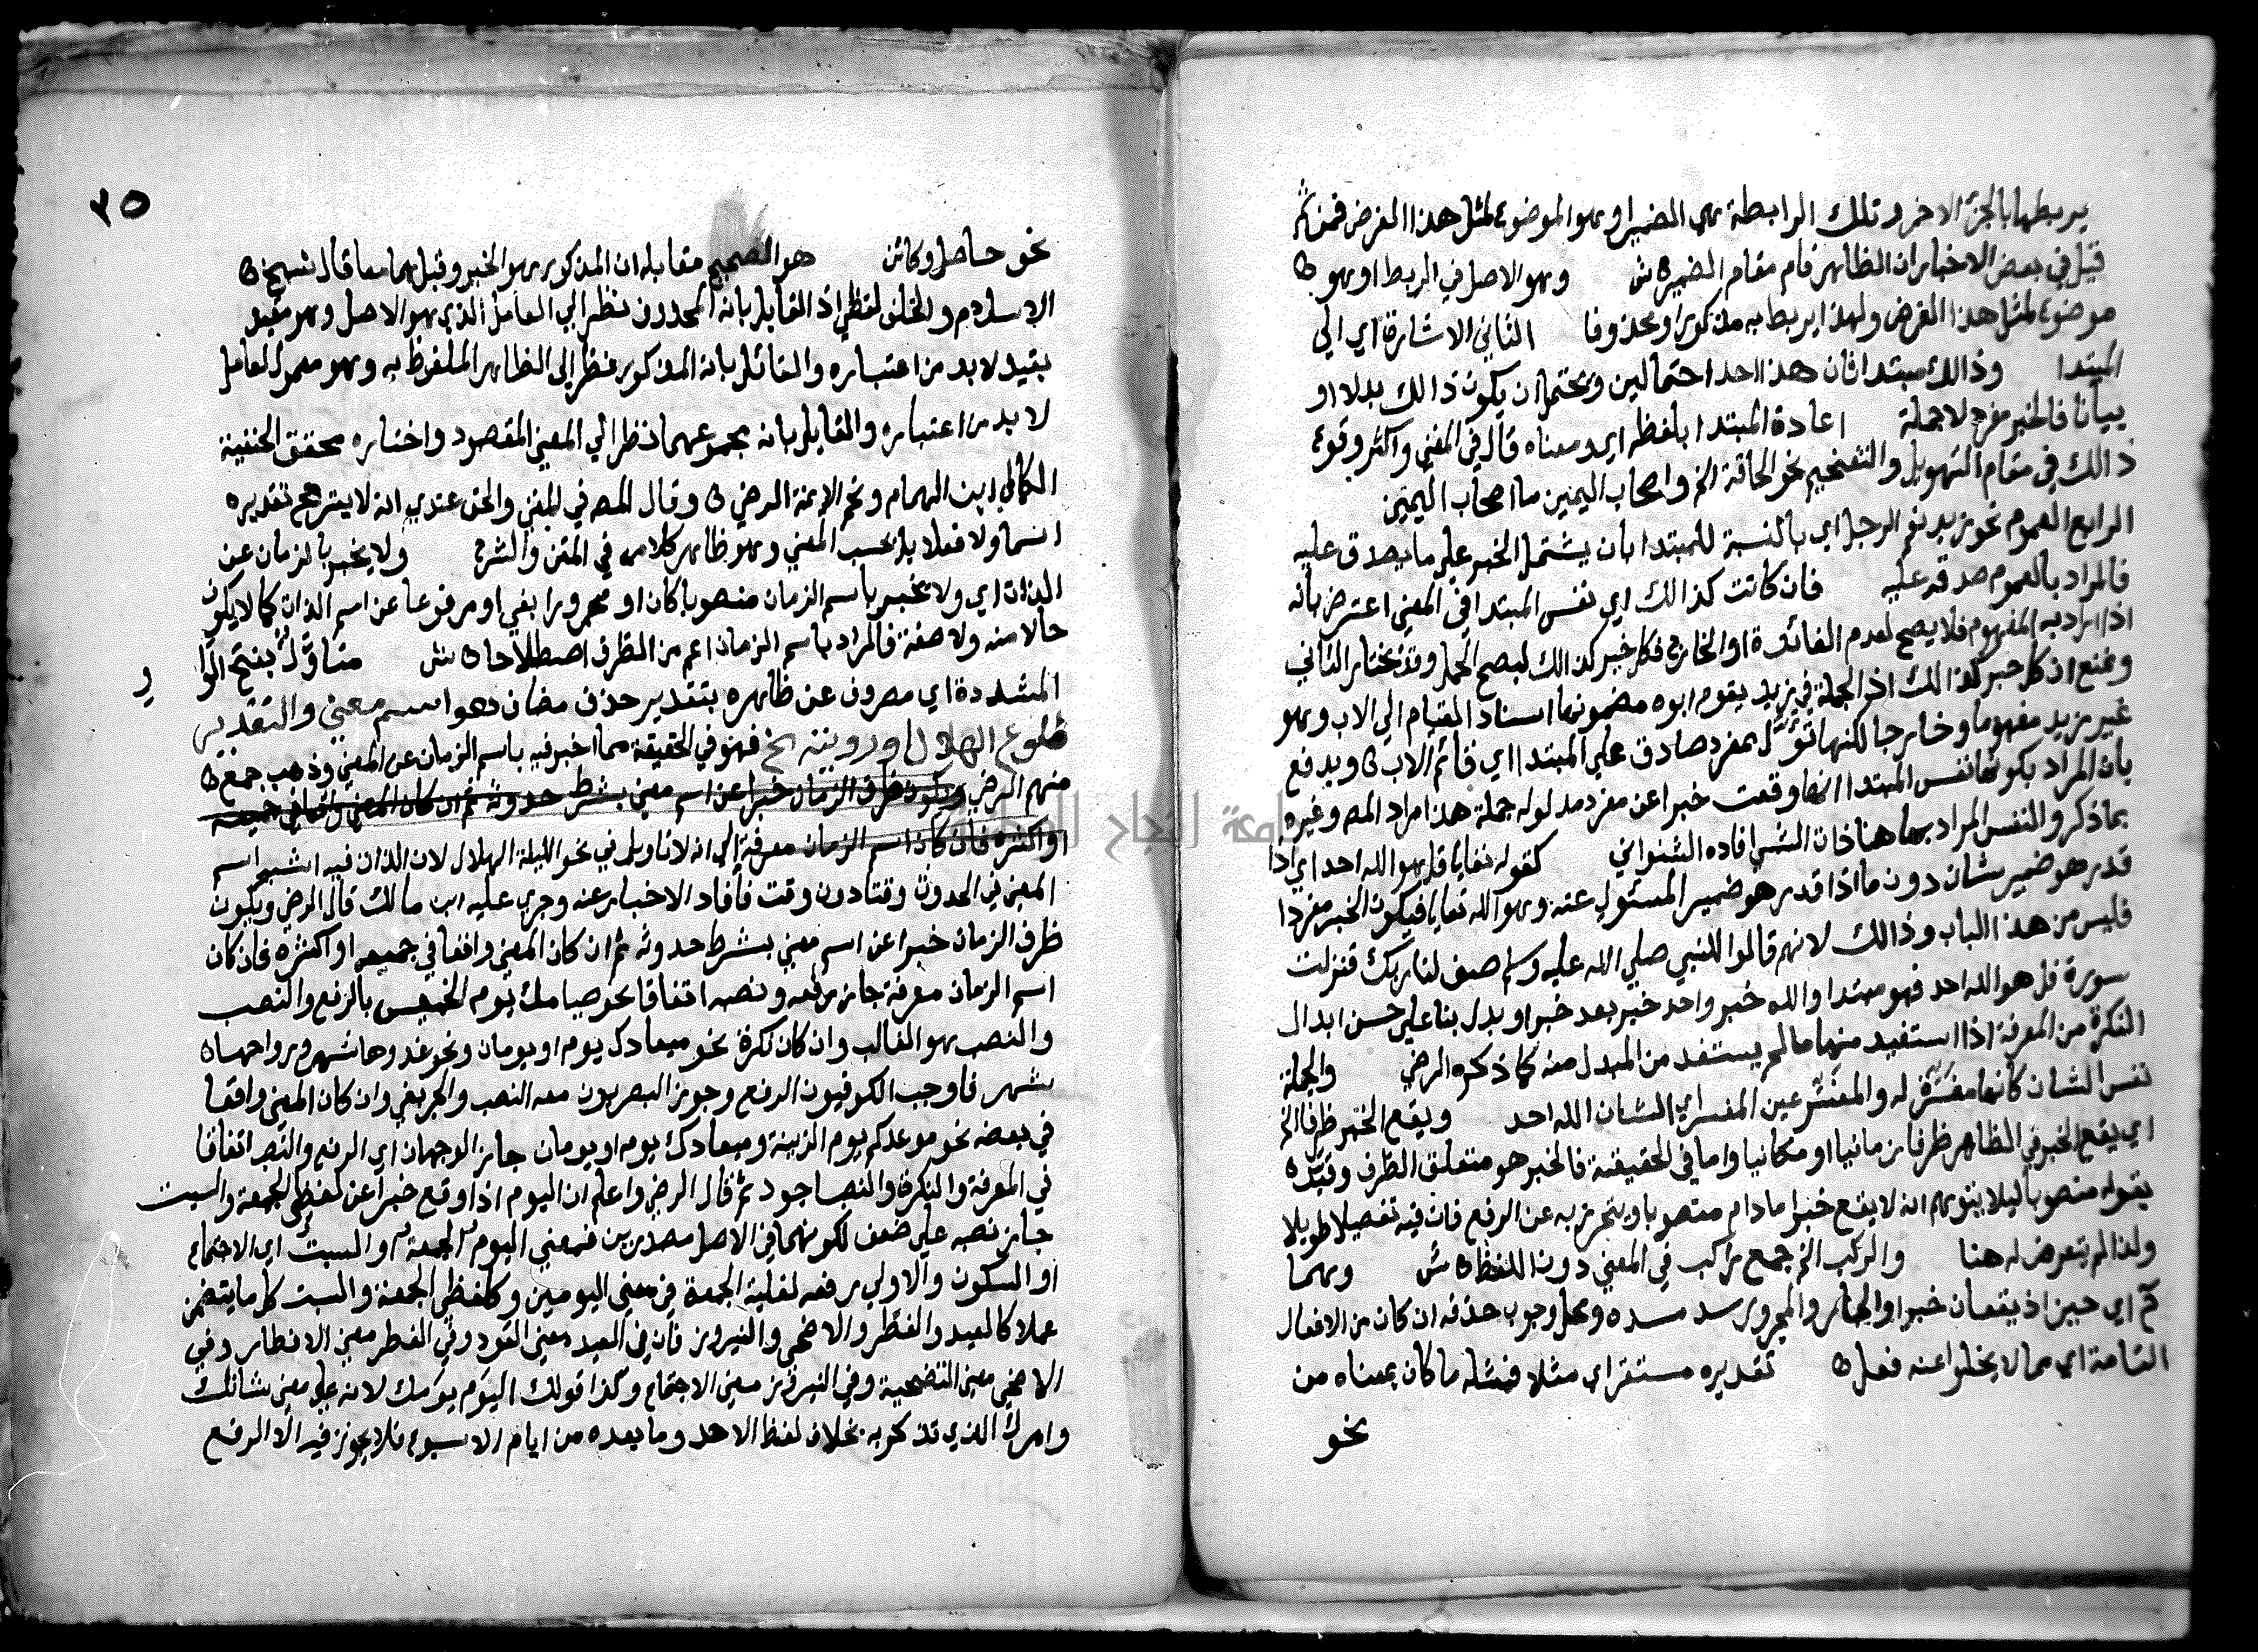 يربطها بالجزء الاخر وتلك الرابطة هي الضمير اوهو الموضوع لمثل هذا الغرض فمن ثم
قيل في بعض الاخبار ان الظاهر قام مقام الضمير ش وهو الاصل في الربط اوهو
موضوع لمثل هذا الغرض ولهذا يربط به مذكورا ومحذوفا الثاني الاشارة اي الي
المبتدا وذالك مبتدا ثان هذا احد احتمالين ويحتمل ان يكون ذالك بدلا او
بيانا فالخبر مفرد لا جملة اعادة المبتدا بلفظه اي ومعناه قال في المغني واكثر وقوع
ذالك في مقام التهويل والتفخيم نحو الحاقة الخ واصحاب اليمين ما اصحاب اليمين
الرابع العموم نحو زيد نعم الرجل اي بالنسبة للمبتدا بان يشتمل الخبر علي ما يصدق عليه
فالمراد بالعموم صدقه عليه فان كانت كذالك اي نفس المبتدا في المعني اعترض بانه
اذا اراد به المفهوم فلا يصح لعدم الفائدة او الخارج فكل خبر كذالك ليصح الحمل وقد يختار الثاني
ونمنع ان كل خبر كذالك اذ الجملة في زيد يقوم ابوه مضمونها اسناد القيام الي الاب وهو
غير زيد مفهوما وخارجا لكنها تؤول بمفرد صادق علي المبتدا اي قائم الاب ويدفع
بان المراد بكونها نفس المبتدا انها وقعت خبرا عن مفرد مدلوله جملة هذا مراد المص وغيره
بما ذكر والنفس المراد بها هنا ذات الشي افاده الشنواني كقوله تعالي قل هو الله احد اي اذا
قدر هو ضمير شان دون ما اذا قدر هو ضمير المسئول عنه وهو الله تعالي فيكون الخبر مفردا
فليس من هذا الباب وذالك لانهم قالوا للنبي صلي الله عليه وسلم صف لنا ربك فنزلت
سورة قل هو الله احد فهو مبتدا والله خبر واحد خبر بعد خبر او بدل بنا علي حسن ابدال
النكرة من المعرفة اذا استفيد منها ما لم يستفد من المبدل منه كما ذكره الرضي والجملة
نفس الشان كانها مفسرة له والمفسر عين المفسر اي الشان الله احد ويقع الخبر ظرفا الخ
اي يقع الخبر في الظاهر ظرفا زمانيا او مكانيا واما في الحقيقة فالخبر هو متعلق الظرف وقيده
بقوله منصوبا ليلا يتوهم انه لا يقع خبرا مادام منصوبا ويتحرز به عن الرفع فان فيه تفصيلا طويلا
ولذا لم يتعرض له هنا والركب الخ جمع راكب في المعني دون اللفظ ش وهما
ثم اي حين اذ يقعان خبرا والجار والمجرور سد مسده ومحل وجوب حذفه ان كان من الافعال
التامة اي مما لا يخلوا عنه فعل تقديره مستقر اي مثلا فمثله ما كان بمعناه من
نحو
٢٥
نحو حاصل وكائن هو الصحيح مقابله ان المذكور هو الخبر وقيل هما معا قال شيخ
الاسلام والخلف لفظي اذ القايل بانه المحذوف نظر الي العامل الذي هو الاصل وهو مقيد
بقيد لا بد من اعتباره والقائل بانه المذكور نظر إلى الظاهر الملفوظ به وهو معمول لعامل
لا بد من اعتباره والقايل بانه مجموعهما نظر الي المعني المقصود واختاره محقق الحنفية
الكمال ابن الهمام ونجم الائمة الرضي وقال المص في المغني والحق عندي انه لا يترجح تقديره
اسما ولا فعلا بل بحسب المعني وهو ظاهر كلامه في المتن والشرح ولا يخبر بالزمان عن
الذات اي ولا يخبر باسم الزمان منصوبا كان او مجرورا بفي او مرفوعا عن اسم الذات كما لا يكون
حالا منه ولا صفة فالمراد باسم الزمان اعم من الظرف اصطلاحا ش متاوّل بفتح الوا
و
المشددة اي مصروف عن ظاهره بتقدير حذف مضاف هو اسم معني والتقدير
طلوع الهلال او رويته نخ فهو في الحقيقة مما اخبر فيه باسم الزمان عن المعني وذهب جمع
منهم الرضي ويكون ظرف الزمان خبرا عن اسم معني بشرط حدوثه ثم ان كان المعني واقعا في جميعه
او اكثره فان كان اسم الزمان معرفة الي انه لا تاويل في نحو الليلة الهلال لان الذات فيه اشبه اسم
المعني في الحدوث وقتا دون وقت فافاد الاخبار عنه وجري عليه ابن مالك قال الرضي ويكون
ظرف الزمان خبرا عن اسم معني بشرط حدوثه ثم ان كان المعني واقعا في جميعه او اكثره فان كان
اسم الزمان معرفة جاز رفعه ونصبه اتفاقا نحو صيامك يوم الخميس بالرفع والنصب
والنصب هو الغالب وان كان نكرة نحو ميعادك يوم او يومان ونحو غدوها شهر ورواحها
شهر فاوجب الكوفيون الرفع وجوز البصريون معه النصب والجر بفي وان كان المعني واقعا
في بعضه نحو موعدكم يوم الزينة وميعادك يوم او يومان جاز الوجهان اي الرفع والنصب اتفاقا
في المعرفة والنكرة والنصب اجود ثم قال الرضي واعلم ان اليوم اذا وقع خبرا عن لفظي الجمعة والسبت
جاز نصبه علي ضعف لكونهما في الاصل مصدرين فمعني اليوم الجمعة او السبت اي الاجتماع
او السكون والاولي رفعه لغلبة الجمعة في معني اليومين وكلفظي الجمعة والسبت كل ما يتضمن
عملا كالعيد والفطر والاضحي والنيروز فان في العيد معني العود وفي الفطر معني الافطار وفي
الاضحي معني التضحية وفي النيروز معني الاجتماع وكذا قولك اليوم يومك لانه علي معني شانك
وامرك الذي تذكر به بخلاف لفظ الاحد وما بعده من ايام الاسبوع فلا يجوز فيه الا الرفع